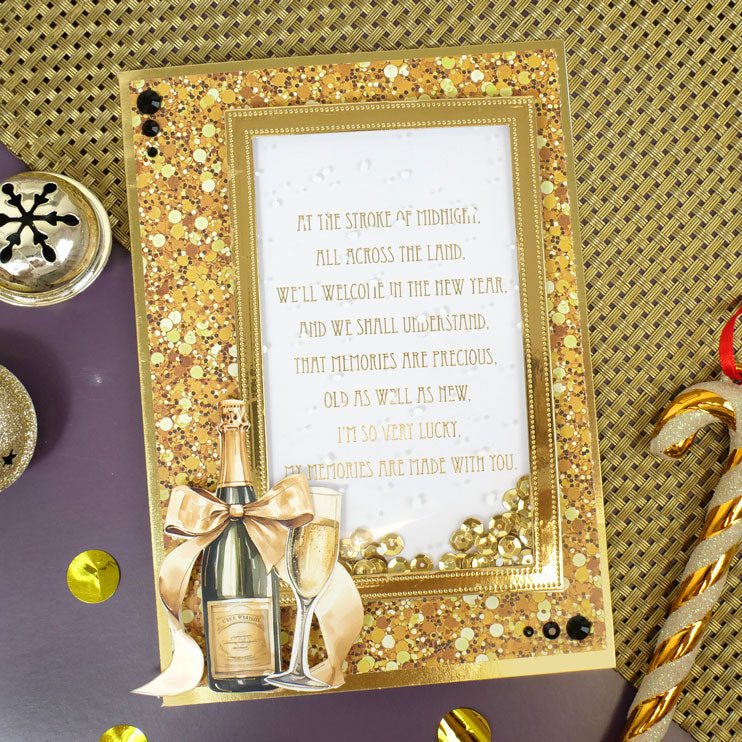 AT THE STROKE OF MIDNIGHT,
ALL ACROSS THE LAND,
WE'LL WELCOME IN THE NEW YEAR,
AND WE SHALL UNDERSTAND,
THAT MEMORIES ARE PRECIOUS,
OLD AS WELL AS NEW,
I'M SO VERY LUCKY,
MY MEMORIES ARE MADE WITH YOU.